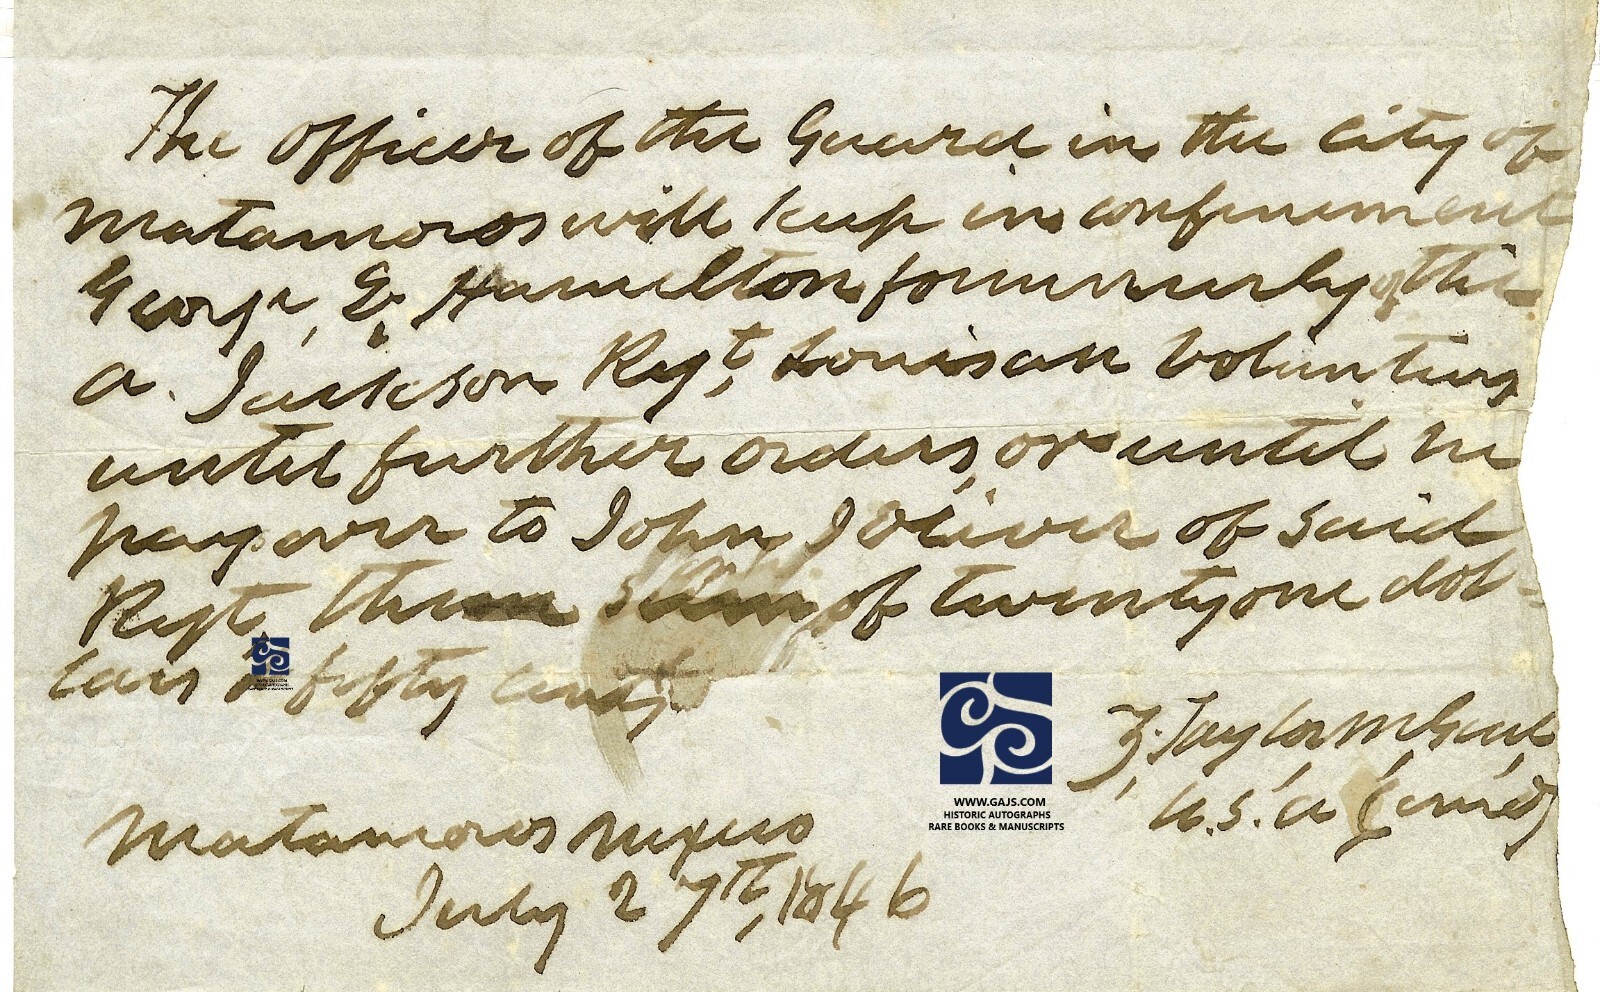 The Officer of the Guard in the City of
Matamoros will keep in confinement
George, E, Hamilton formerly of the
A. Jackson Regt, Louisian Volunteers
until further orders, or until he
pay over to John J Oliver of said
Regt, the sum of twentyone dol=
lars & fifty cents
Z. Taylor M Genl,
U.S.A Comdg
Matamoros Mexico
July 27th, 1846
WWW.GAJS.COM
HISTORIC AUTOGRAPHS
RARE BOOKS & MANUSCRIPTS